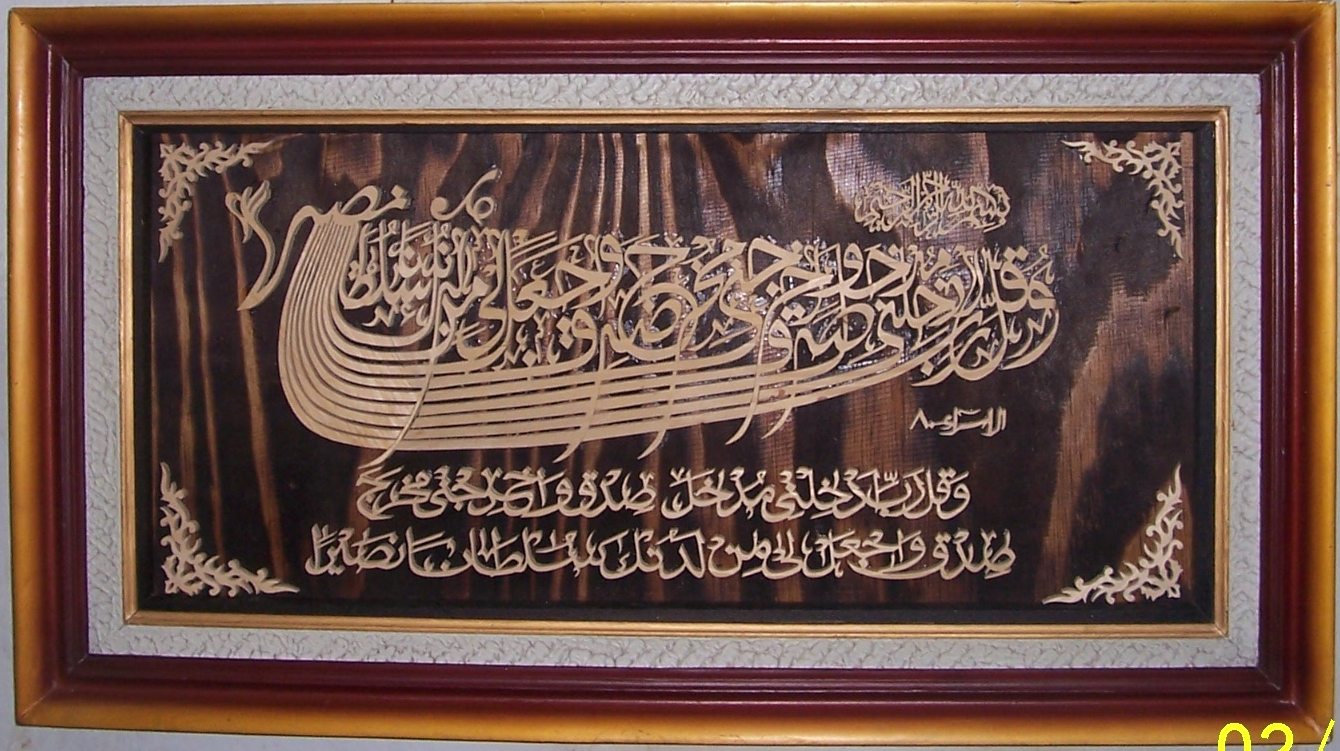 بسم الله الرحمن الرحيم
وقل رب أدخلني مدخل صدق وأخرجني مخرج صدق واجعل لي من لدنك سلطانا نصيرا
الاسراء ٨٠
وَقُل رَّبِّ اَدْخِلْنِى مُدْخَلَ صِدْقٍ وَاَخْرِجْنِى مُخْرَجَ
صِدْقٍ وَاجْعَل لِى مِنْ لَدُنْكَ سُلْطَانًا نَصِيْرًا
02/